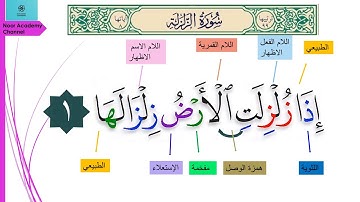 Noor Academy
Channel
سُورَةُ الزَّلْزَلَة
اللام الاسم
الاظهار
اللام القمرية
اللام الفعل
الاظهار
الطبيعي
إِذَا زُلْزِلَتِ الْأَرْضُ زِلْزَالَهَا ١
الطبيعي
الإستعلاء
مفخمة
همزة الوصل
اللثوية